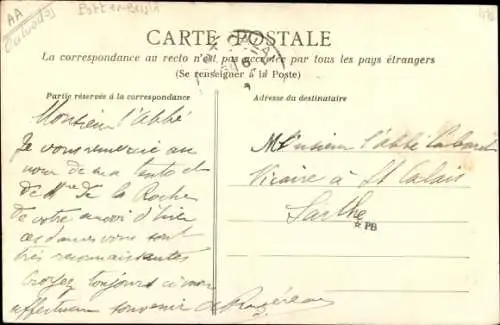 AA
Calvados
Port-en-Bessin
CARTE POSTALE
La correspondance au recto n'est pas acceptée par tous les pays étrangers
(Se renseigner à la Poste)
Partie réservée à la correspondance
Monsieur l'abbé
Je vous remercie au
nom de ma tante et
de Mme de la Roche
de votre envoi d'hier
ces dames vous sont
très reconnaissantes
Croyez toujours à mon
affectueux souvenir
Adresse du destinataire
Monsieur l'abbé
Vicaire à St Calais
Sarthe
PB